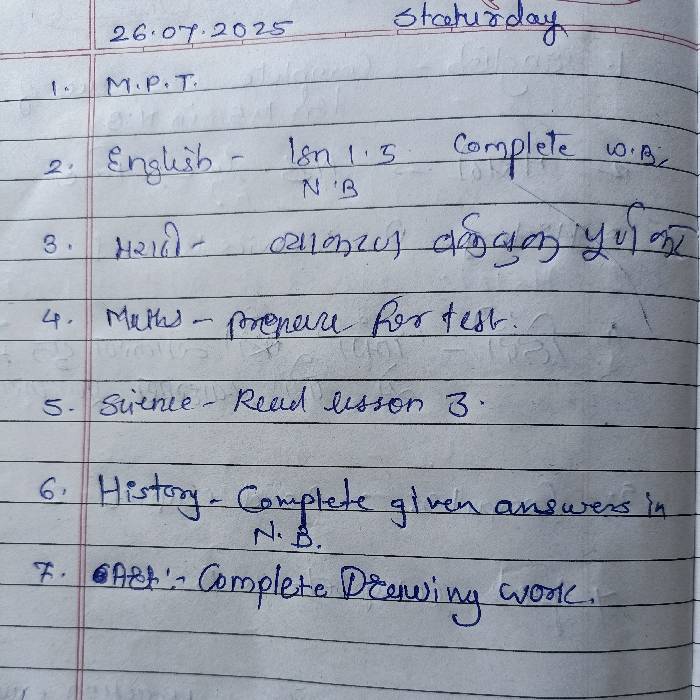 26.07.2025 Staturday
1. M.P.T.
2. English - lsn 1.5 Complete W.B,
N.B
3. मराठी -
4. Maths - prepare for test.
5. Science - Read lesson 3.
6. History - Complete given answers in
N.B.
7. Art :- Complete Drewing work.